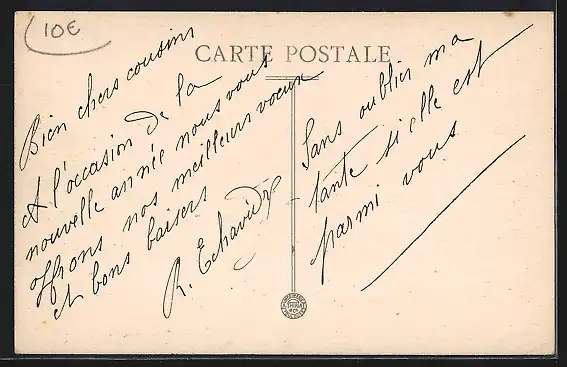 10€
CARTE POSTALE
Bien chers cousins
A l'occasion de la
nouvelle année nous vous
offrons nos meilleurs voeux
et bons baisers
R. Echavidre
Sans oublier ma
tante si elle est
parmi vous